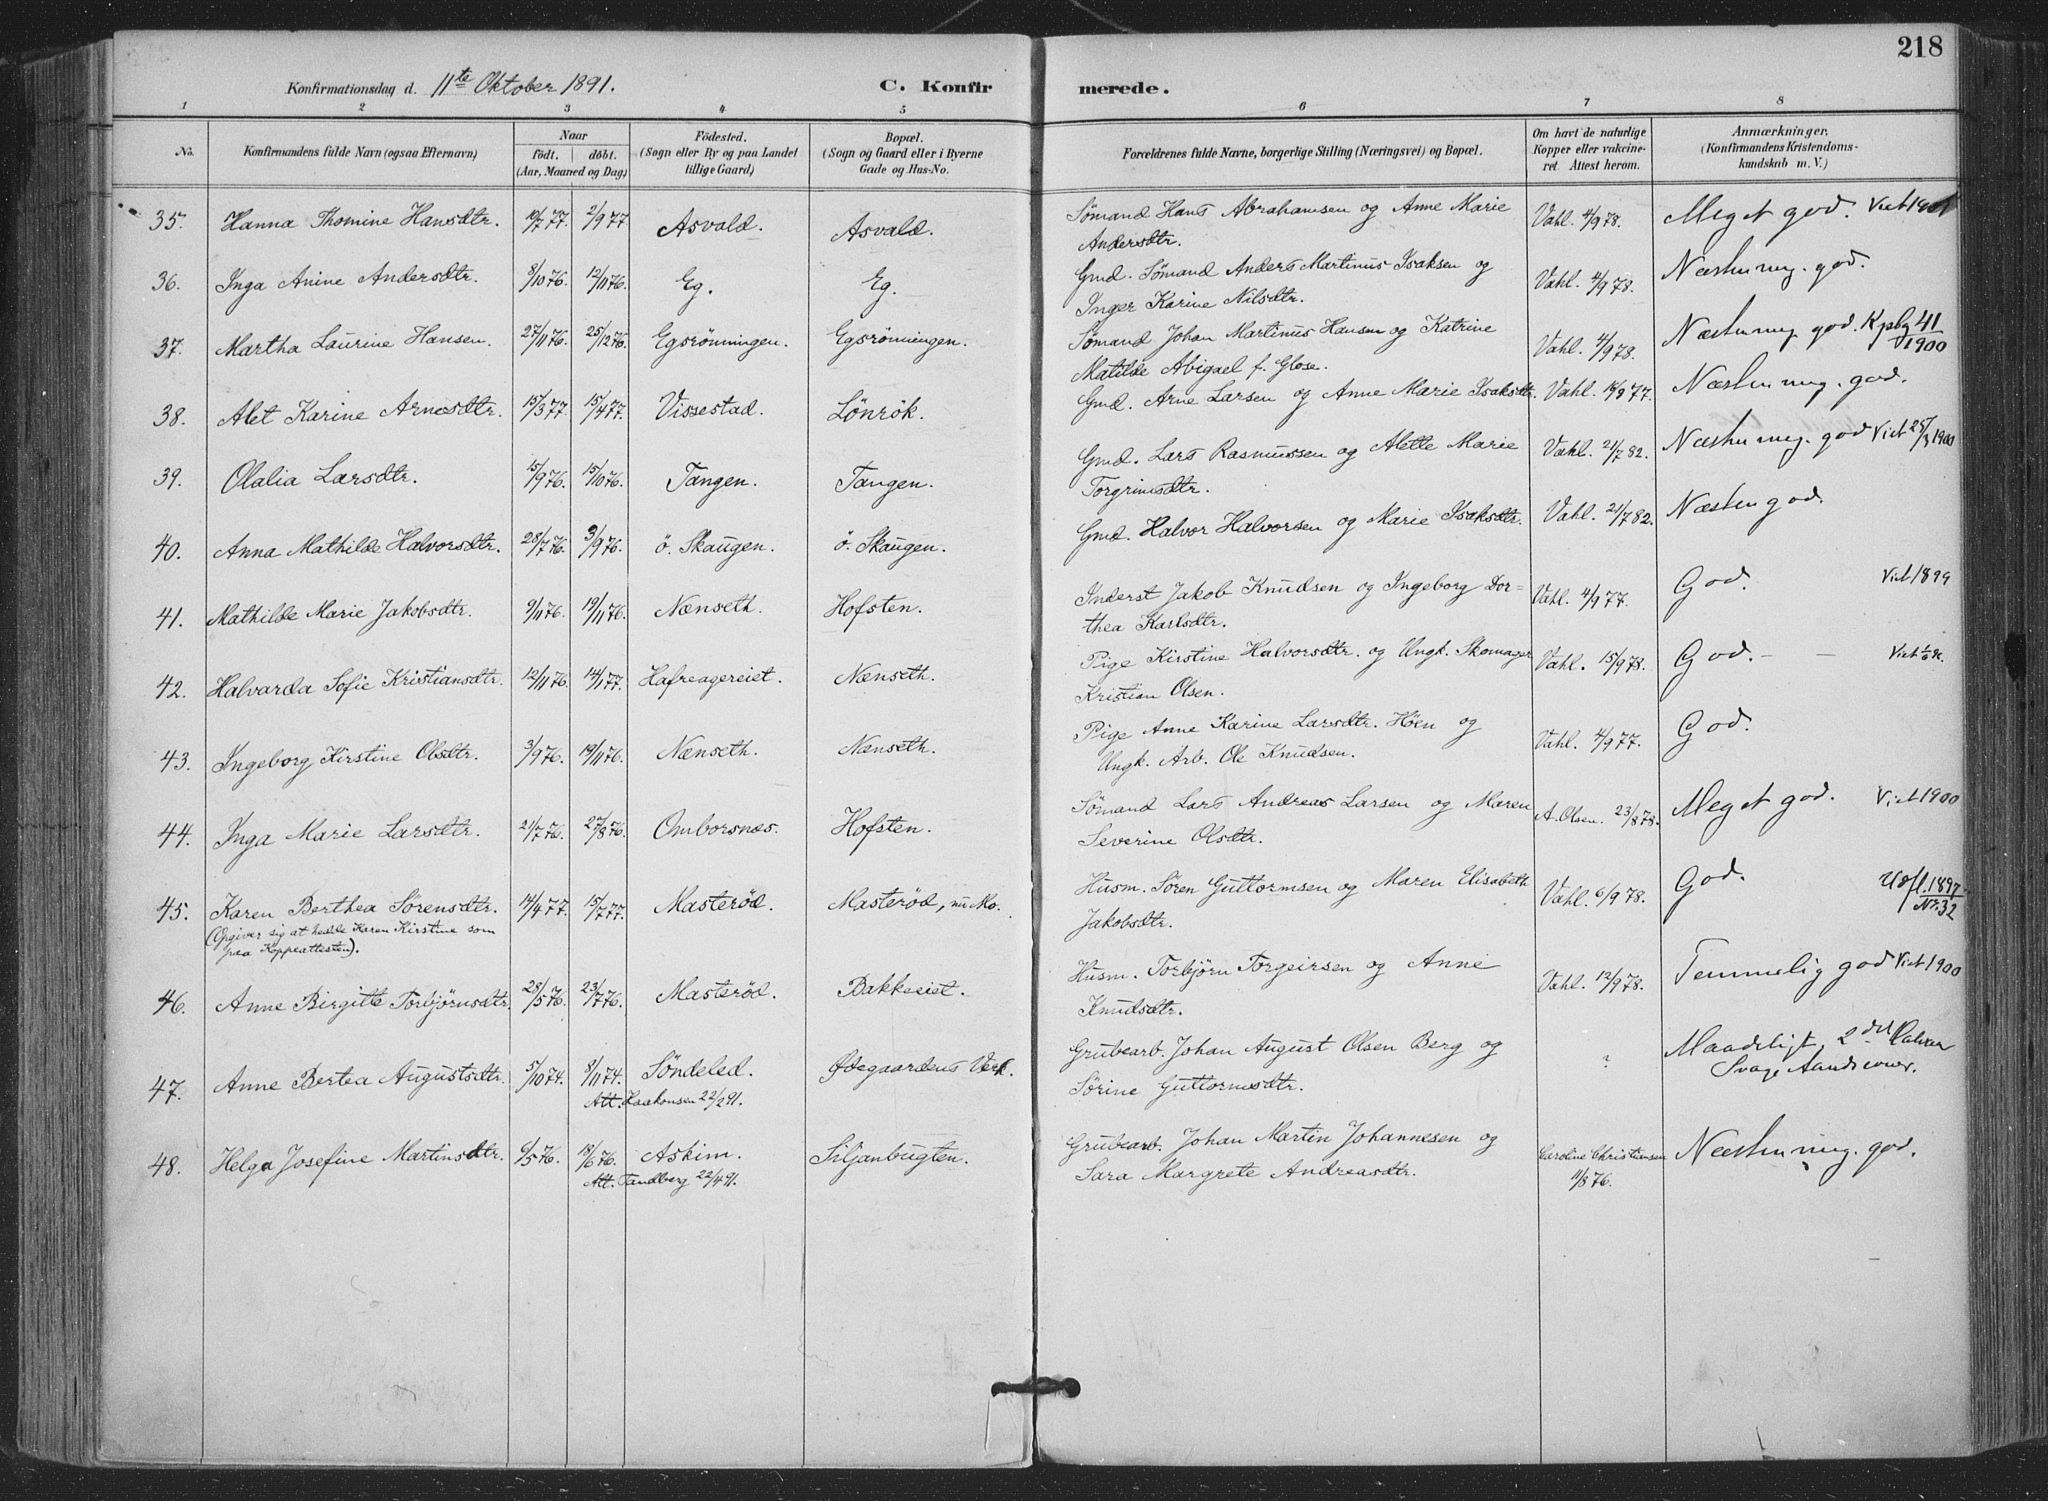 218
Konfirmationsdag d. 11te Oktober 1891. C. Konfir merede.
1 2 3 4 5 6 7 8
No. Konfirmandens fulde Navn (ogsaa Efternavn) Naar født. døbt. (Aar, Maaned og Dag) Födested. (Sogn eller By og paa Landet tillige Gaard) Bopæl. (Sogn og Gaard eller i Byerne Gade og Hus-No. Forældrenes fulde Navne, borgerlige Stilling (Næringsvei) og Bopæl. Om havt de naturlige Kopper eller vakcineret Attest herom. Anmærkninger. (Konfirmandens Kristendomskundskab m. V.)
35. Hanna Thomine Hansdtr. 10/7 77. 2/9 77 Asvald. Asvald. Sømand Hans Abrahamsen og Anne Marie Vahl. 4/9 78. Meget god. Viet
Andersdtr.
36. Inga Anine Andersdtr. 8/10 76. 12/11 76. Eg. Eg. Gmd. Sømand Anders Martinus Isaksen og Vahl. 4/9 78. Næsten meg. god.
Inger Karine Nilsdtr.
37. Martha Laurine Hansen. 27/11 76. 25/12 76. Egsrönningen. Egsrönningen. Sømand Johan Martinus Hansen og Katrine Vahl. 4/9 78. Næsten meg god. Kpsbg 41/1900
Matilde Abigael f. Glose.
38. Alet Karine Arnesdtr. 15/3 77. 15/4 77. Vissestad. Lönrök. Gmd. Arne Larsen og Anne Marie Isaksdtr. Vahl. 10/9 77. Næsten meg. god.
39. Olalia Larsdtr. 15/9 76. 15/10 76. Tangen. Tangen. Gmd. Lars Rasmussen og Alette Marie Vahl. 21/7 82. Næsten meg. god Viet 25/3 1900
Torgrimsdtr.
40. Anna Mathilde Halvorsdtr. 28/7 76. 3/9 76. ö. Skaugen. ö. Skaugen. Gmd. Halvor Halvorsen og Marie Isaksdtr. Vahl. 21/7 82. Næsten god.
41. Mathilde Marie Jakobsdtr. 9/11 76. 19/11 76. Nænseth. Hofsten. Inderst Jakob Knudsen og Ingeborg Dor- Vahl. 4/9 77. God. Viet 1899
thea Karlsdtr.
42. Halvarda Sofie Kristiansdtr. 12/11 76. 14/1 77. Hafreagereiet. Nænseth. Pige Kirstine Halvorsdtr. og Ungk. Skomager Vahl. 15/9 78. God. Viet
Kristian Olsen.
43. Ingeborg Kirstine Olsdtr. 3/9 76. 19/11 76. Nænseth. Nænseth. Pige Anne Karine Larsdtr. Höen og Vahl. 4/9 77. God.
Ungk. Arb. Ole Knudsen.
44. Inga Marie Larsdtr. 21/7 76. 27/8 76. Omborsnæs. Hofsten. Sømand Lars Andreas Larsen og Maren A. Olsen. 23/8 78. Meget god. Viet 1900
Severine Olsdtr.
45. Karen Berthea Sørensdtr. 14/4 77. 15/7 77. Masteröd. Masteröd, nu Mo. Husm. Søren Guttormsen og Maren Elisabeth Vahl. 6/9 78. God. Udfl. 1897 Nr. 32
(Opgiver sig at hedde Karen Kirstine som Jakobsdtr.
paa Koppeattesten).
46. Anne Birgitte Torbjörnsdtr. 28/5 76. 23/7 76. Masteröd. Bakkeeiet. Husm. Torbjörn Torgeirsen og Anne Vahl. 12/9 78. Temmelig god Viet 1900
Knudsdtr.
47. Anne Bertea Augustsdtr. 5/10 74. 8/11 74. Söndeled. Ødegaardens Verk. Grubearb. Johan August Olsen Berg og ? Maadeligt
Att. Haakonsen 22/2 91. Sörine Guttormsdtr. Svage Aandsevner.
48. Helga Josefine Martinsdtr. 6/5 76. 18/6 76. Askim. Siljanbugten. Grubearb. Johan Martin Johannesen og Caroline Christiansen Næsten meg. god.
Att. Tandberg 22/4 91. Sara Margrete Andreasdtr. 11/8 76.